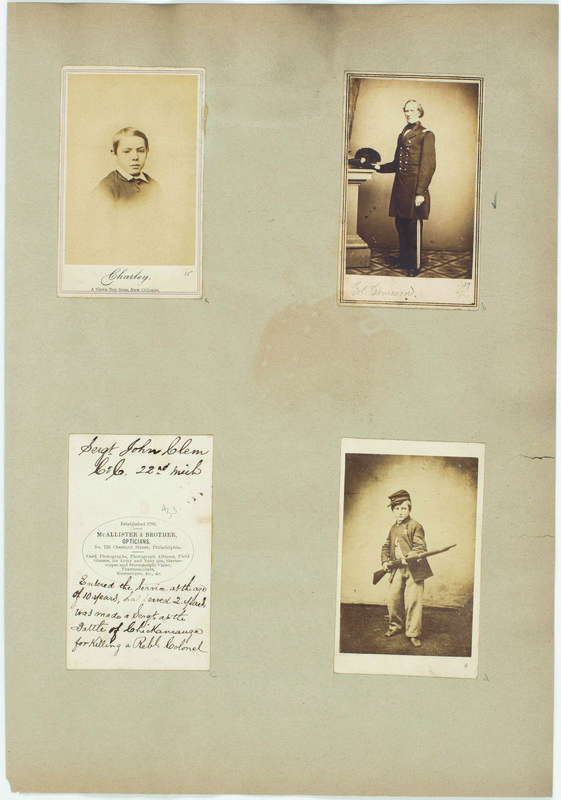 Charley.
A Slave Boy from New Orleans.
Sergt John Clem
Co C. 22nd Mich
Established 1796.
McALLISTER & BROTHER,
OPTICIANS,
No. 728 Chestnut Street, Philadelphia.
Card Photographs, Photograph Albums, Field
Glasses, for Army and Navy use, Stereo-
scopes and Stereoscopic Views,
Thermometers,
Microscopes, &c., &c.
Entered the Service at the age
of 10 years, had served 2 years
was made a Sergt at the
Battle of Chickamauga
for killing a Rebl Colonel